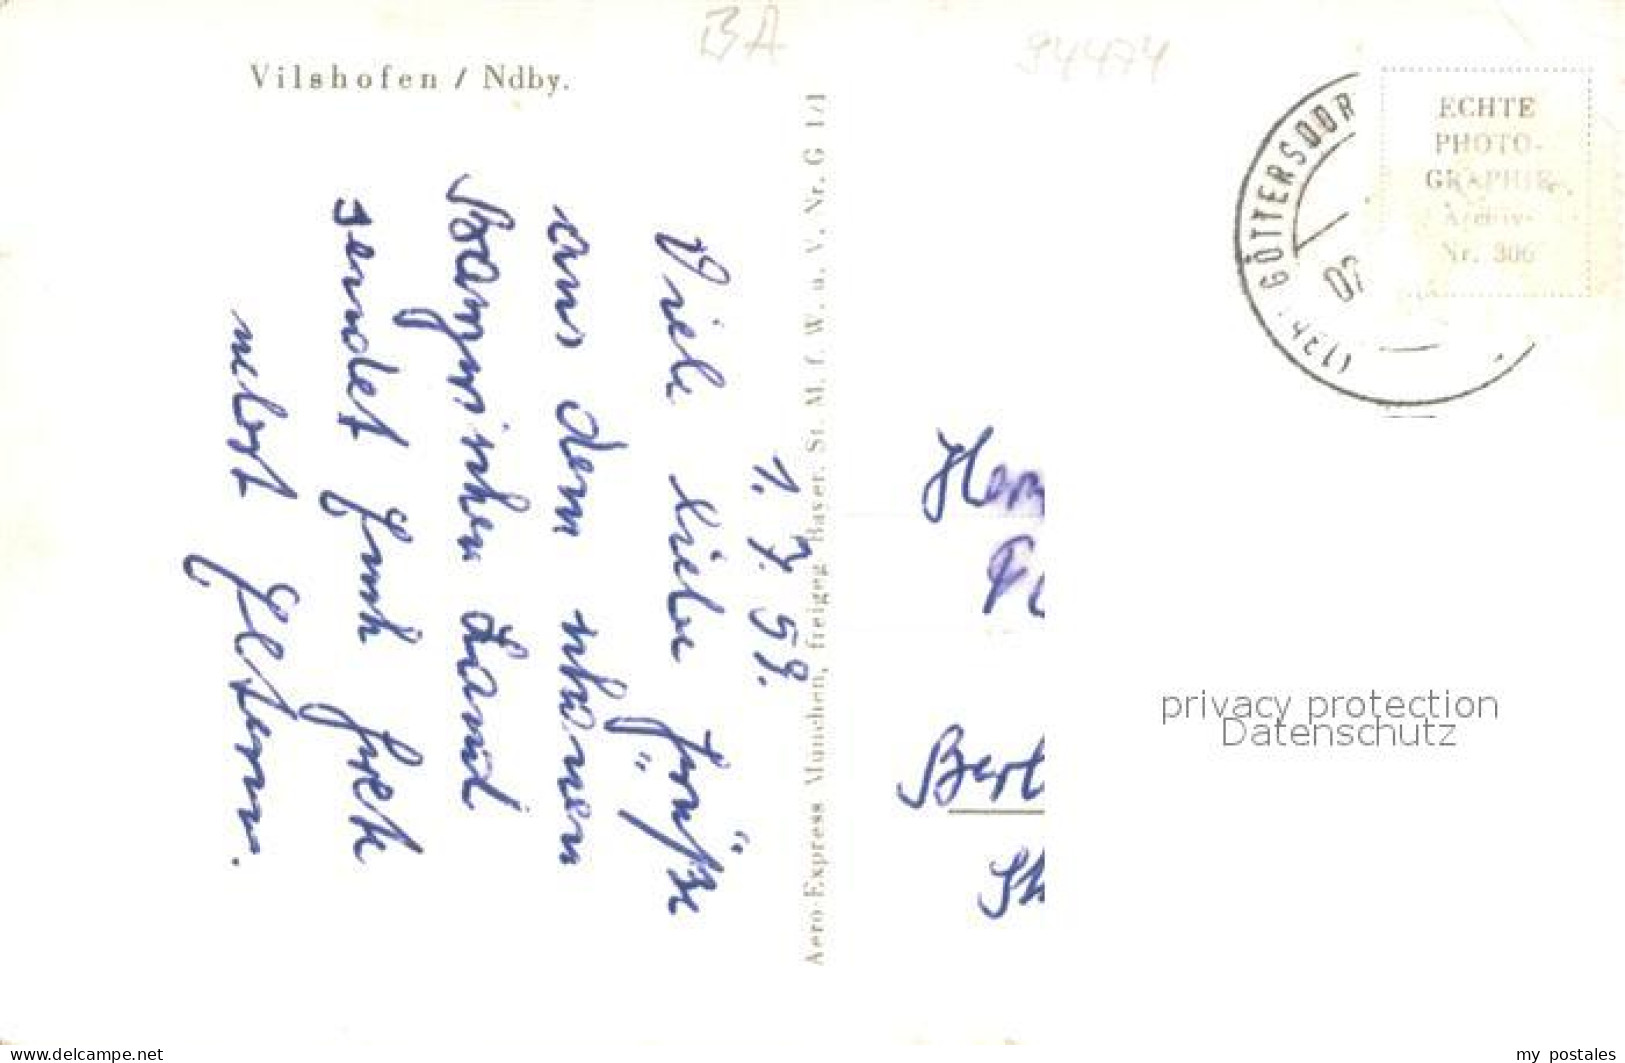 BA
94474
Vilshofen / Ndby.
1. 7. 59.
Viele liebe Grüße
aus dem schönen
Bayrischen Land
sendet Euch
nebst Eltern.
Aero-Express München, freigeg. Bayer. St. M. f. W. u. V. Nr. G 1/1
GÖTTERSDOR
07
ECHTE
PHOTO-
GRAPHIE
Archiv-
Nr. 306
Her
Bert
privacy protection
Datenschutz
www.delcampe.net
my_postales